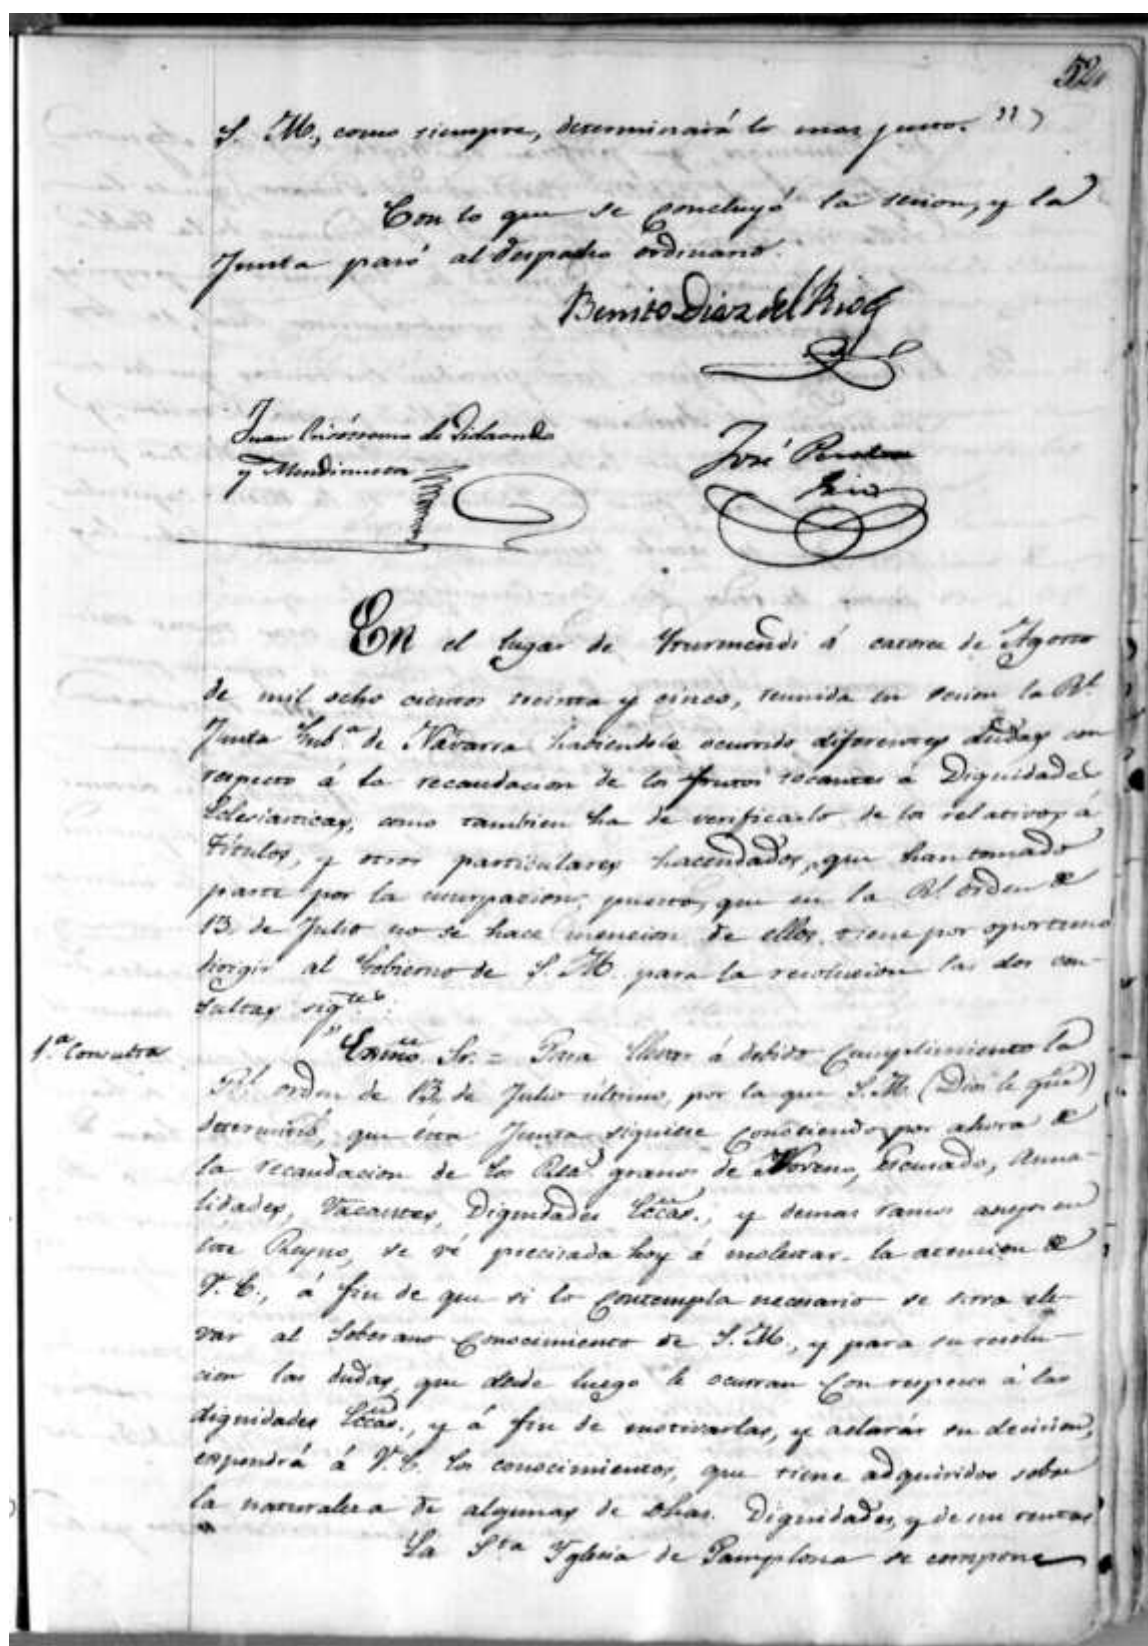 52
S. M., como siempre, determinará lo mas justo. "
Con lo que se concluyó la sesion, y la
Junta pasó al despacho ordinario.
Benito Diaz del Rio
Juan Crisóstomo de Vidaondo
y Mendinueta
José
Srio
En el lugar de Yturmendi á catorce de Agosto
de mil ocho cientos treinta y cinco, reunida en sesion la Rl.
Junta Gub.a de Navarra habiendole ocurrido diferentes dudas con
respecto á la recaudacion de los frutos tocantes á Dignidades
Eclesiasticas, como tambien ha de verificarlo de los relativos á
Titulos, y otros particulares hacendados, que han tomado
parte por la usurpacion, puesto, que en la Rl. orden de
13, de Julio no se hace mencion de ellos, tiene por oportuno
dirigir al Gobierno de S. M. para la resolucion las dos con-
sultas sig.tes:
1.a Consulta
"Exmo. Sr. = Para llevar á debido cumplimiento la
Rl. orden de 13, de Julio último, por la que S. M. (Dios le gũe)
determinó, que esta Junta siguiese conociendo por ahora de
la recaudacion de los Rea.s granos de Noveno, Escusado, Anua-
lidades, Vacantes, Dignidades Eccãs., y demas ramos anejos en
este Reyno, se vé precisada hoy á molestar la atencion de
V. E., á fin de que si lo contempla necesario se sirva ele-
var al Soberano conocimiento de S. M., y para su resolu-
cion las dudas, que desde luego le ocurran con respecto á las
dignidades Eccãs., y á fin de motivarlas, y aclarár su decision,
espondrá á V. E. los conocimientos, que tiene adquiridos sobre
la naturaleza de algunas de dhas. Dignidades, y de sus rentas
" La S.ta Yglesia de Pamplona se compone